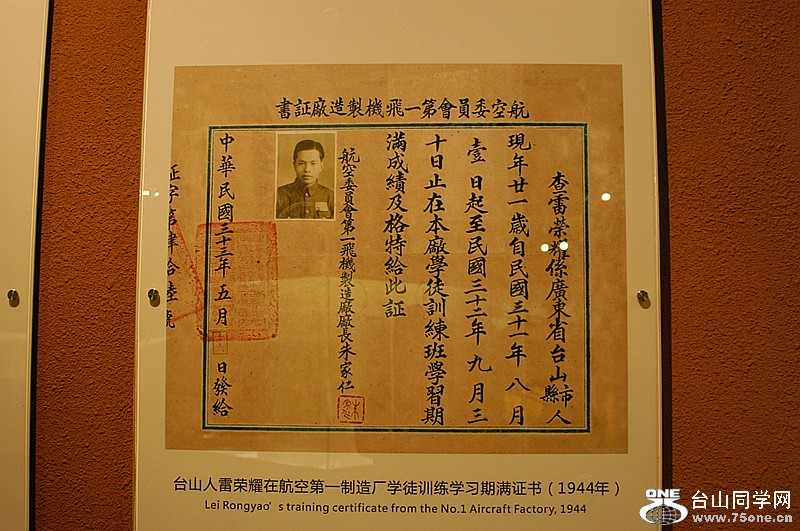 航空委員會第一飛機製造廠証書
查雷榮耀係廣東省台山市縣人
現年廿一歲自民國三十一年八月
壹日起至民國三十二年九月三
十日止在本廠學徒訓練班學習期
滿成績及格特給此証
航空委員會第一飛機製造廠廠長朱家仁
中華民國三十三年五月 日發給
証字第肆拾陸號
台山人雷荣耀在航空第一制造厂学徒训练学习期满证书（1944年）
Lei Rongyao's training certificate from the No.1 Aircraft Factory, 1944
ONE
台山同学网
www.75one.cn